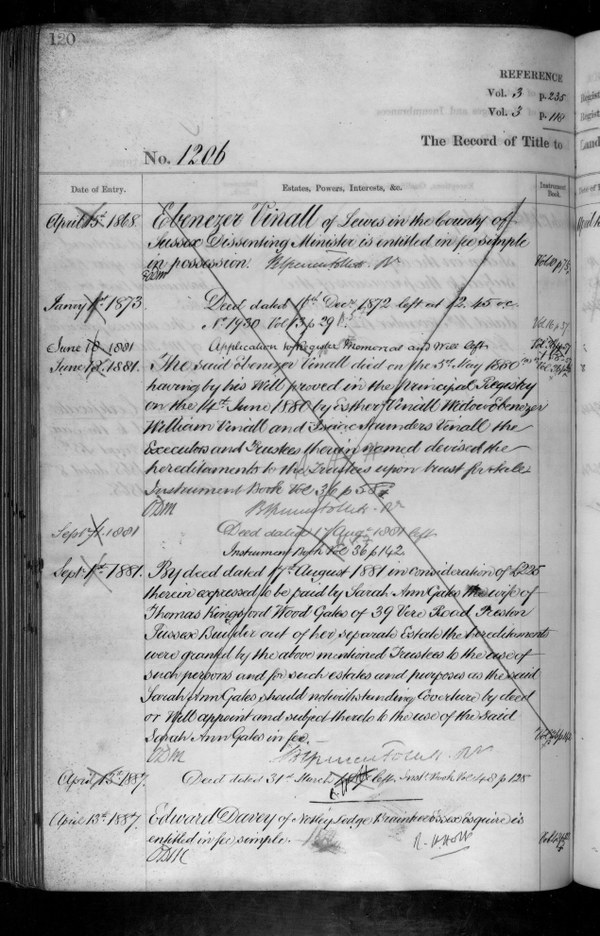 120
REFERENCE
Vol. 3 p. 235
Vol. 3 p. 118
No. 1206
The Record of Title to
Date of Entry.
Estates, Powers, Interests, &c.
Instrument Book.
April 15th 1868.
Ebenezer Vinall of Lewes in the County of
Sussex Dissenting Minister is entitled in fee simple
in possession.
Janry 1st 1873.
Deed dated 11th Decr 1872 left at 12.45 o.c.
No 1930 Vol 13 p 29
June 18 1881
Application to Register Memorial and Will left
June 18. 1881.
The said Ebenezer Vinall died on the 3rd May 1880
having by his Will proved in the Principal Registry
on the 14th June 1880 by Esther Vinall Widow Ebenezer
William Vinall and Isaac Saunders Vinall the
Executors and Trustees therein named devised the
hereditaments to the Trustees upon trust for sale
Instrument Book Vol 36 p
Sept 1881
Deed dated 17 Augt 1881 left
Instrument Book Vol 36 p 142.
Sept 1st 1881.
By deed dated 17th August 1881 in consideration of £225
therein expressed to be paid by Sarah Ann Gates the wife of
Thomas Kingsford Wood Gates of 39 Vere Road Preston
Sussex Builder out of her separate Estate the hereditaments
were granted by the above mentioned Trustees to the use of
such persons and for such estates and purposes as the said
Sarah Ann Gates should notwithstanding Coverture by deed
or Will appoint and subject thereto to the use of the said
Sarah Ann Gates in fee.
April 13th 1887.
Deed dated 31st March left Inst. Book Vol 48 p 128
April 13th 1887.
Edward Davey of Notley Lodge Braintree Essex Esquire is
entitled in fee simple.
R. H. Holt